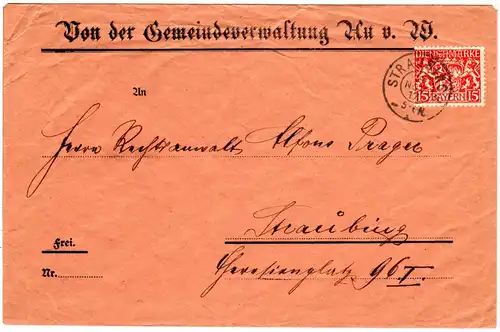 Von der Gemeindeverwaltung Au v. W.
DIENSTMARKE
15 BAYERN 15
STRA
An
Herrn Rechtsanwalt Alfons Prager
Straubing
Frei.
Theresienplatz 96 I.
Nr.